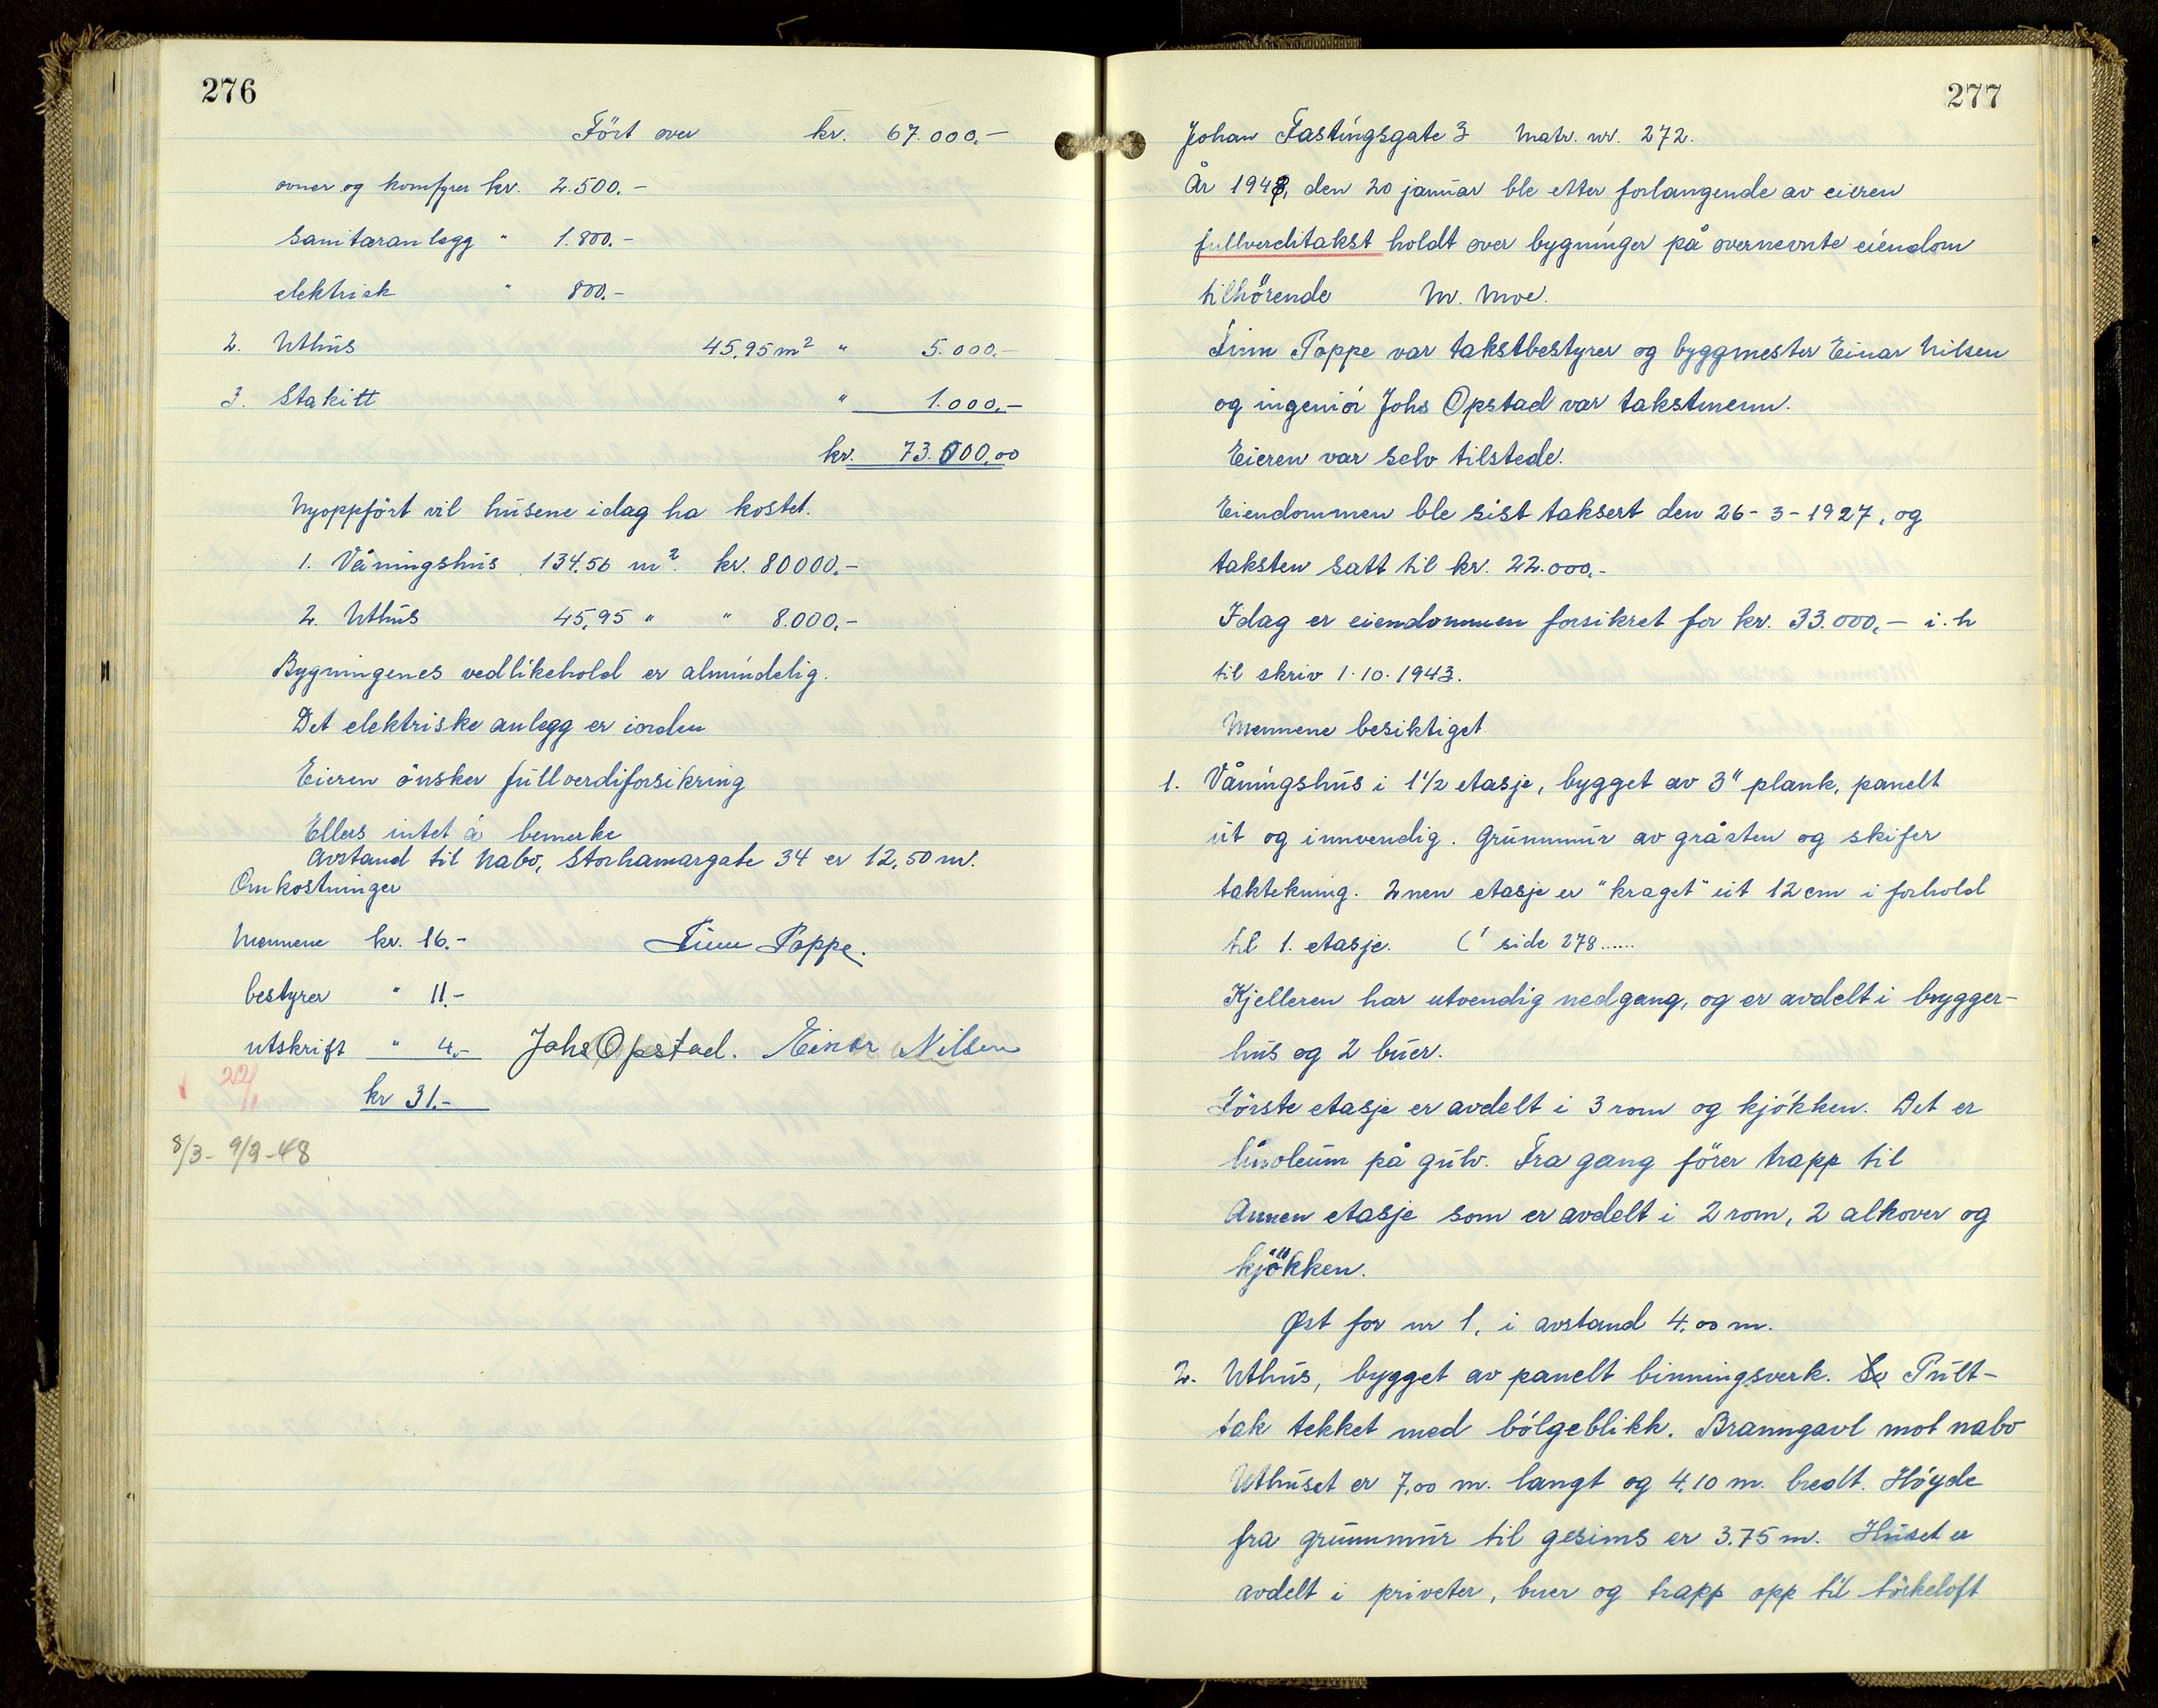 276
Fört over kr. 67.000,-
ovner og komfyrer kr. 2.500.-
Sanitæranlegg " 1.800.-
elektrisk " 800.-
2. Uthus 45,95 m² " 5.000,-
3. Stakitt " 1.000,-
kr. 73.000,00
Nyoppfört vil husene idag ha kostet.
1. Våningshus 134,56 m². kr. 80000,-
2. Uthus 45,95 " " 8.000,-
Bygningenes vedlikehold er almindelig.
Det elektriske anlegg er iorden
Eieren önsker fullverdiforsikring
Ellers intet å bemerke
Avstand til Nabo, Storhamargate 34 er 12,50 m.
Omkostninger
Mennene kr. 16.-
Finn Poppe.
bestyrer " 11.-
utskrift " 4,-
Johs Opstad. Einar Nilsen
22/1
kr 31.-
8/3- 9/3-48
277
Johan Fastingsgate 3 Matr. nr. 272.
År 1948, den 20 januar ble etter forlangende av eieren
fullverditakst holdt over bygninger på overnevnte eiendom
tilhörende M. Moe.
Finn Poppe var takstbestyrer og byggmester Einar Nilsen
og ingeniör Johs Opstad var takstmenn.
Eieren var selv tilstede.
Eiendommen ble sist taksert den 26-3-1927, og
taksten satt til kr. 22.000,-
Idag er eiendommen forsikret for kr. 33.000,- i.h
til skriv 1.10.1943.
Mennene besiktiget
1. Våningshus i 1 1/2 etasje, bygget av 3" plank, panelt
ut og innvendig. Grunnmur av gråsten og skifer
taktekning. 2nen etasje er "kraget" ut 12 cm i forhold
til 1. etasje. (' side 278......
Kjelleren har utvendig nedgang, og er avdelt i brygger-
hus og 2 buer.
Förste etasje er avdelt i 3 rom og kjökken. Det er
linoleum på gulv. Fra gang förer trapp til
Annen etasje som er avdelt i 2 rom, 2 alkover og
kjökken.
Øst for nr 1, i avstand 4,00 m.
2. Uthus, bygget av panelt binningsverk. Pult-
tak tekket med bölgeblikk. Branngavl mot nabo
Uthuset er 7,00 m. langt og 4,10 m. bredt. Höyde
fra grunnmur til gesims er 3.75 m. Huset er
avdelt i priveter, buer og trapp opp til törkeloft